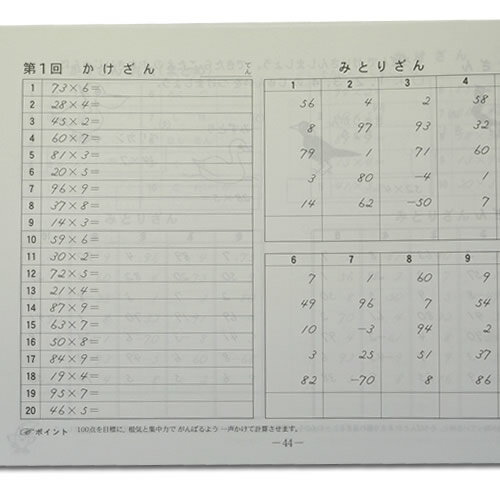 第1回 かけざん てん
1 73×6=
2 28×4=
3 45×2=
4 60×7=
5 81×3=
6 20×5=
7 96×9=
8 37×8=
9 14×3=
10 59×6=
11 30×2=
12 72×5=
13 21×4=
14 87×9=
15 63×7=
16 50×8=
17 84×9=
18 19×4=
19 95×7=
20 46×5=
みとりざん
1 2 3 4
56 4 2 58
8 97 93 32
79 1 71 60
3 80 -4 1
14 62 -50 7
6 7 8 9
7 1 60 9
49 96 7 54
10 -3 94 2
3 25 51 37
82 -70 8 86
ポイント 100点を目標に、根気と集中力でがんばるよう一声かけて計算させます。
—44—